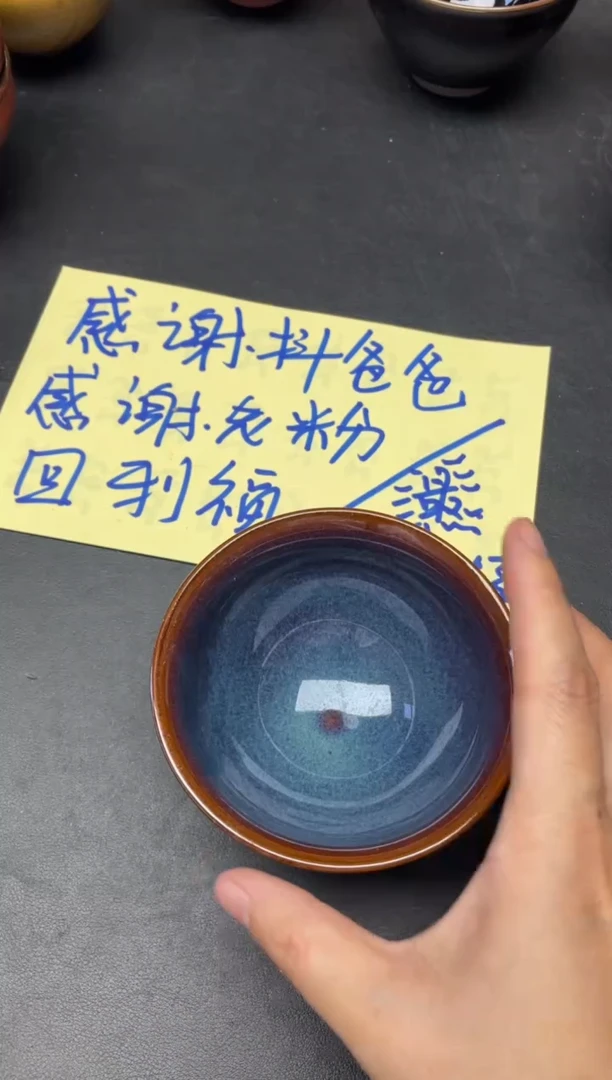 感谢.抖爸爸
感谢.老粉
回利